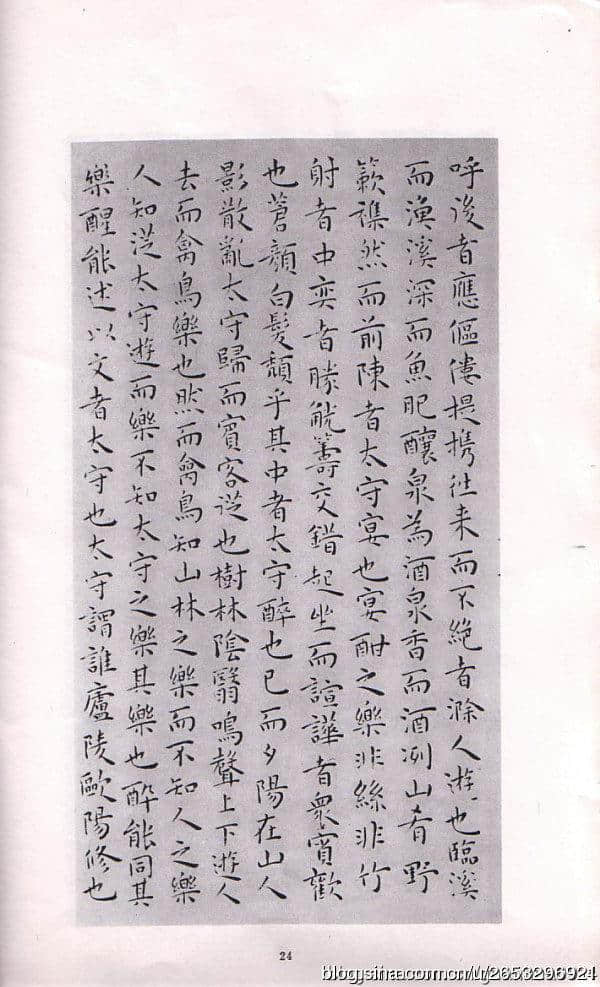 呼後者應傴僂提携往来而不絶者滁人遊也臨溪
而漁溪深而魚肥釀泉為酒泉香而酒冽山肴野
簌襍然而前陳者太守宴也宴酣之樂非絲非竹
射者中奕者勝觥籌交錯起坐而諠譁者衆賓歡
也蒼顔白髮頽乎其中者太守醉也已而夕陽在山人
影散亂太守歸而賓客從也樹林陰翳鳴聲上下遊人
去而禽鳥樂也然而禽鳥知山林之樂而不知人之樂
人知從太守遊而樂不知太守之樂其樂也醉能同其
樂醒能述以文者太守也太守謂誰廬陵歐陽修也
24
blog.sina.com.cn/u/2653296924